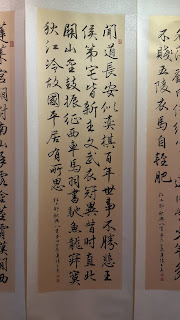 不賤五陵衣馬自輕肥
聞道長安似奕棋百年世事不勝悲王
侯第宅皆新主文武衣冠異昔時直北
關山金鼓振征西車馬羽書馳魚龍寂寞
秋江冷故國平居有所思
蓬萊宮闕對南山承露金莖霄漢間西